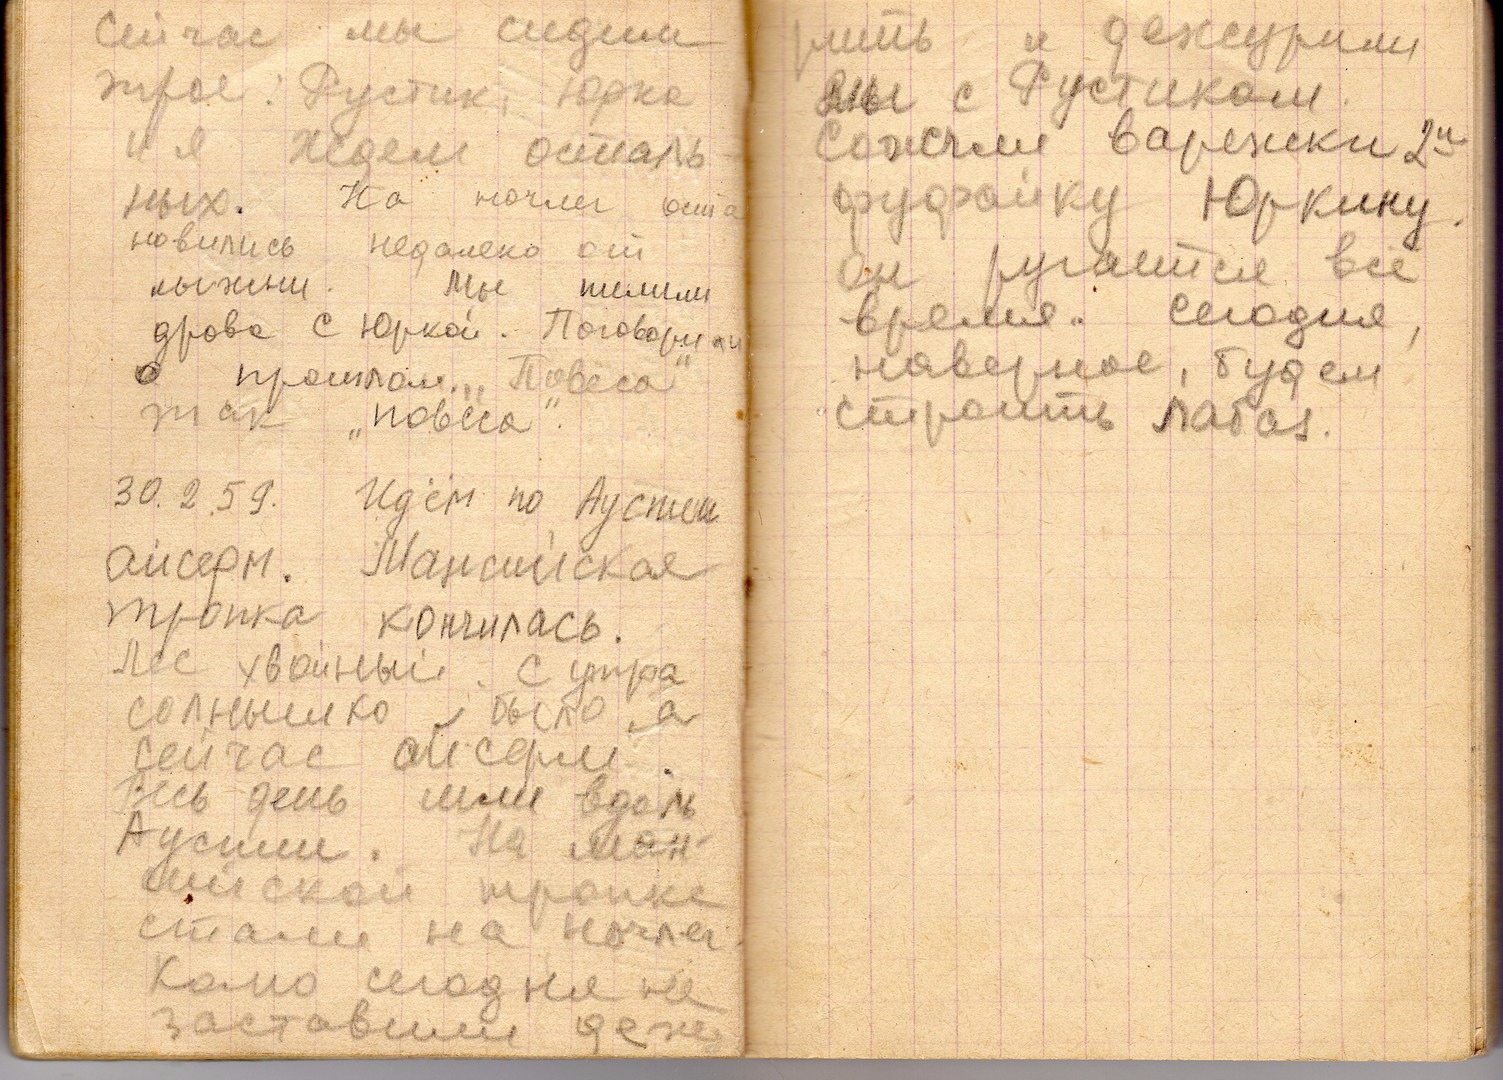 Сейчас мы сидим
трое: Рустик, Юрка
и я Ждем осталь-
ных. На ночлег оста
новились недалеко от
лыжни. Мы пилили
дрова с Юркой. Поговорили
о прошлом. „Повеса"
так „повеса".
30.2.59. Идём по Ауспии
айсерм. Мансийская
тропка кончилась.
Лес хвойный. С утра
солнышко было, а
сейчас айсерм.
Весь день шли вдоль
Ауспии. На ман-
сийской тропке
стали на ночлег.
Колю сегодня не
заставили дежу
рить и дежурили
мы с Рустиком.
Сожгли варежки 2ю
фуфайку Юркину.
он ругается всё
время. Сегодня,
наверное, будем
строить лабаз.